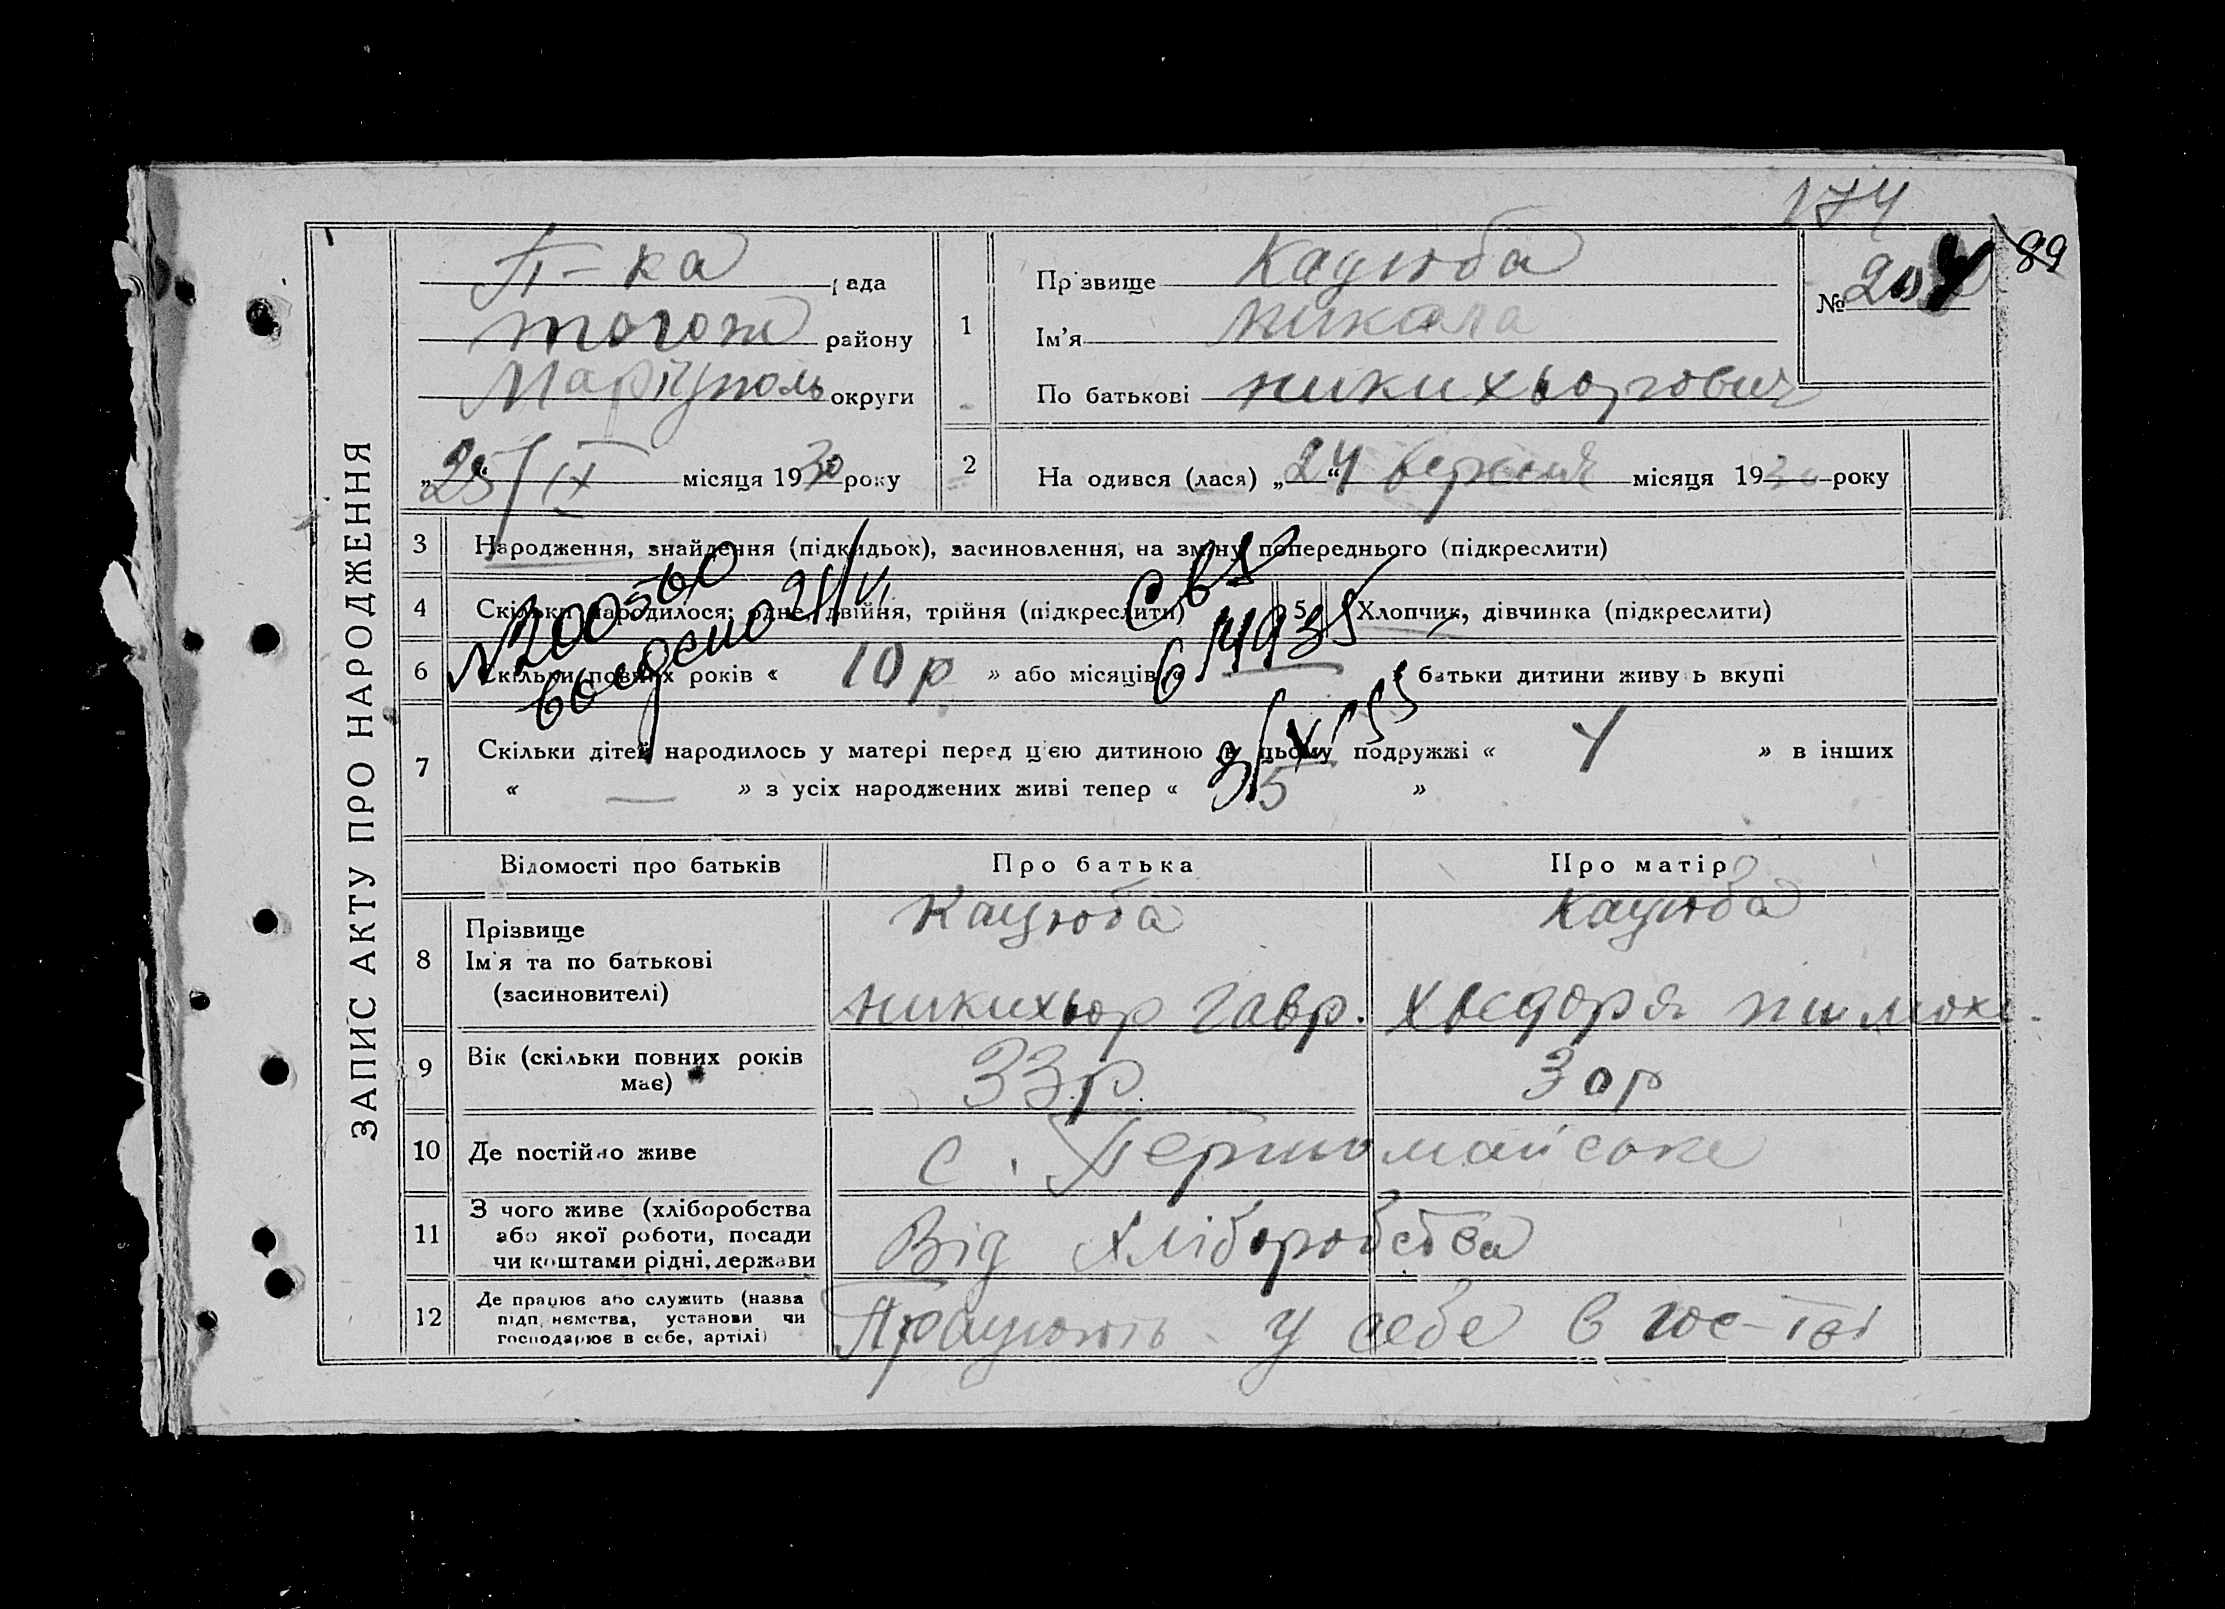 174
89
ЗАПИС АКТУ ПРО НАРОДЖЕННЯ
П-ка рада
тогож району
Маріуполь округи
„25/IX місяця 1930 року
1
Прізвище Кацюба
Ім'я Микола
По батькові Никихьорович
№ 204
2 На одився (лася) „24“ вересня місяця 1930 року
3 Народження, знайдення (підкидьок), засиновлення, на зміну попереднього (підкреслити)
4 Скільки народилося: одне, двійня, трійня (підкреслити)
5 Хлопчик, дівчинка (підкреслити)
6 Скільки повних років « 10 р » або місяців « — » батьки дитини живуть вкупі
7 Скільки дітей народилось у матері перед цією дитиною в цьому подружжі « 4 » в інших
« — » з усіх народжених живі тепер « 5 »
№200560
21/VI
3/XI 55
Відомості про батьків Про батька Про матір
8 Прізвище
Ім'я та по батькові
(засиновителі)
Кацюба
Никихьор Гавр.
Кацюба
Хведоря
9 Вік (скільки повних років має)
33 р.
30 р
10 Де постійно живе
с. Першомайське
11 З чого живе (хліборобства
або якої роботи, посади
чи коштами рідні, держави
Від хліборобства
12 Де працює або служить (назва
підп иємства, установи чи
господарює в себе, артілі)
Працюють у себе в гос-тві